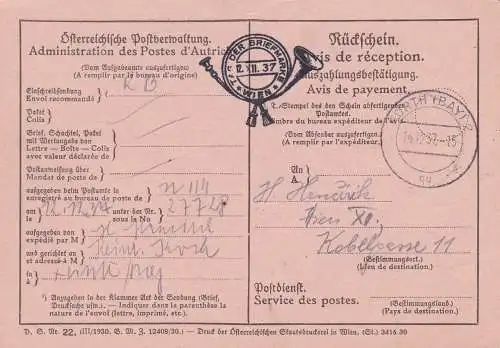 Österreichische Postverwaltung.
Administration des Postes d'Autric
(Vom Aufgabeamte auszufertigen.)
(A remplir par le bureau d'origine)
Einschreibsendung
Envoi recommandé
Paket
Colis
Brief, Schachtel, Paket
mit Wertangabe von
Lettre — Boîte — Colis
avec valeur déclarée de
Postanweisung über
Mandat de poste de
aufgegeben beim Postamte in
enregistré au bureau de poste de
am
le
unter der Nr.
sous le No
27728
aufgegeben von
expédié par M
und gerichtet an
et adressé à M
in
à
*) Anzugeben in der Klammer Art der Sendung (Brief,
Drucksache usw.). — Indiquer dans la parenthèse la
nature de l'envoi (lettre, imprimé, etc.).
TAG DER BRIEFMARKE
12.XII.37
* WIEN *
Rückschein.
Avis de réception.
Auszahlungsbestätigung.
Avis de payement.
T.-Stempel des den Schein abfertigenden
Postamtes.
Timbre du bureau expéditeur de l'avi
(Vom Absender auszufertigen.)
(A remplir par l'expéditeur.)
FÜRTH (BAY) 2
An
A
Wien XII,
11
(Bestimmungsort.)
(Lieu de destination.)
Postdienst.
Service des postes.
(Bestimmungsland.)
(Pays de destination.)
D. S. Nr. 22. (III/1930. G. M. Z. 12408/30.) — Druck der Österreichischen Staatsdruckerei in Wien. (St.) 3416 30